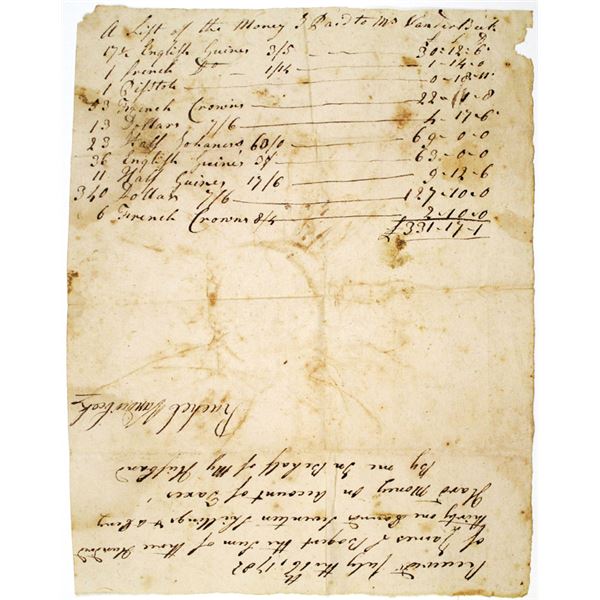 A List of the Money I Paid to Mr Vanderbeek
17½ English Guines 3/5 30-12-6
1 French Do 1/14 1-14-0
1 Pistole 0-18-11
53 French Crowns 22-1-8
13 Dollars 7/6 4-17-6
23 Half Johanes 60/0 69-0-0
36 English Guines 3/ 63-0-0
11 Half Guines 17/6 9-12-6
340 Dollars 7/6 127-10-0
6 French Crowns 8/4 2-10-0
£331-17-1
Received July the 16th, 1782
of James Bogert the Sum of three Hundred
thirty one Pounds Seventeen Shillings & a Peny
Hard Money on Account of Taxes
By me In Behalf of My Husband
Rachel Vanderbeek